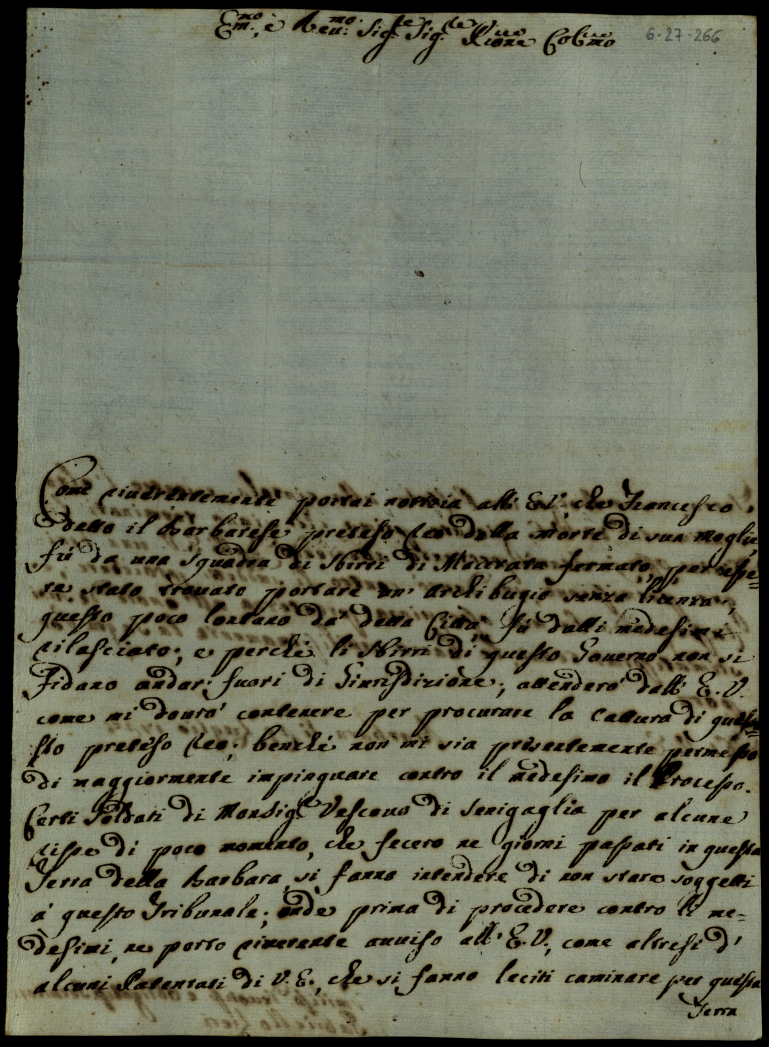 Em.mo, e Reu.mo Sig.re Sig.re P͞rone Col͞mo
6-27-266
Come riuerentemente portai notizia all' E.V. che Francesco
detto il Barbarese preteso reo della morte di sua moglie
fù da una squadra di sbirri di Macerata fermato, per esse=
re stato trouato portare un' archibugio senza licenza,
questo poco lontano da detta Città fù dalli medesimi
rilasciato; e perche li sbirri di questo Gouerno non si
fidano andar fuori di Giurisdizione, attenderò dall' E.V.
come mi dourò contenere per procurare la cattura di que=
sto preteso reo; benche non mi sia presentemente permesso
di maggiormente impinguare contro il medesimo il Processo.
Certi Soldati di Monsig.r Vescouo di Senigaglia per alcune
risse di poco momento, che fecero ne giorni passati in questa
Terra della Barbara, si fanno intendere di non stare soggetti
à questo Tribunale; onde prima di procedere contro li me=
desimi, ne porto riuerente auuiso all' E.V., come altresi d'
alcuni Patentati di V.E., che si fanno leciti caminare per questa
Terra